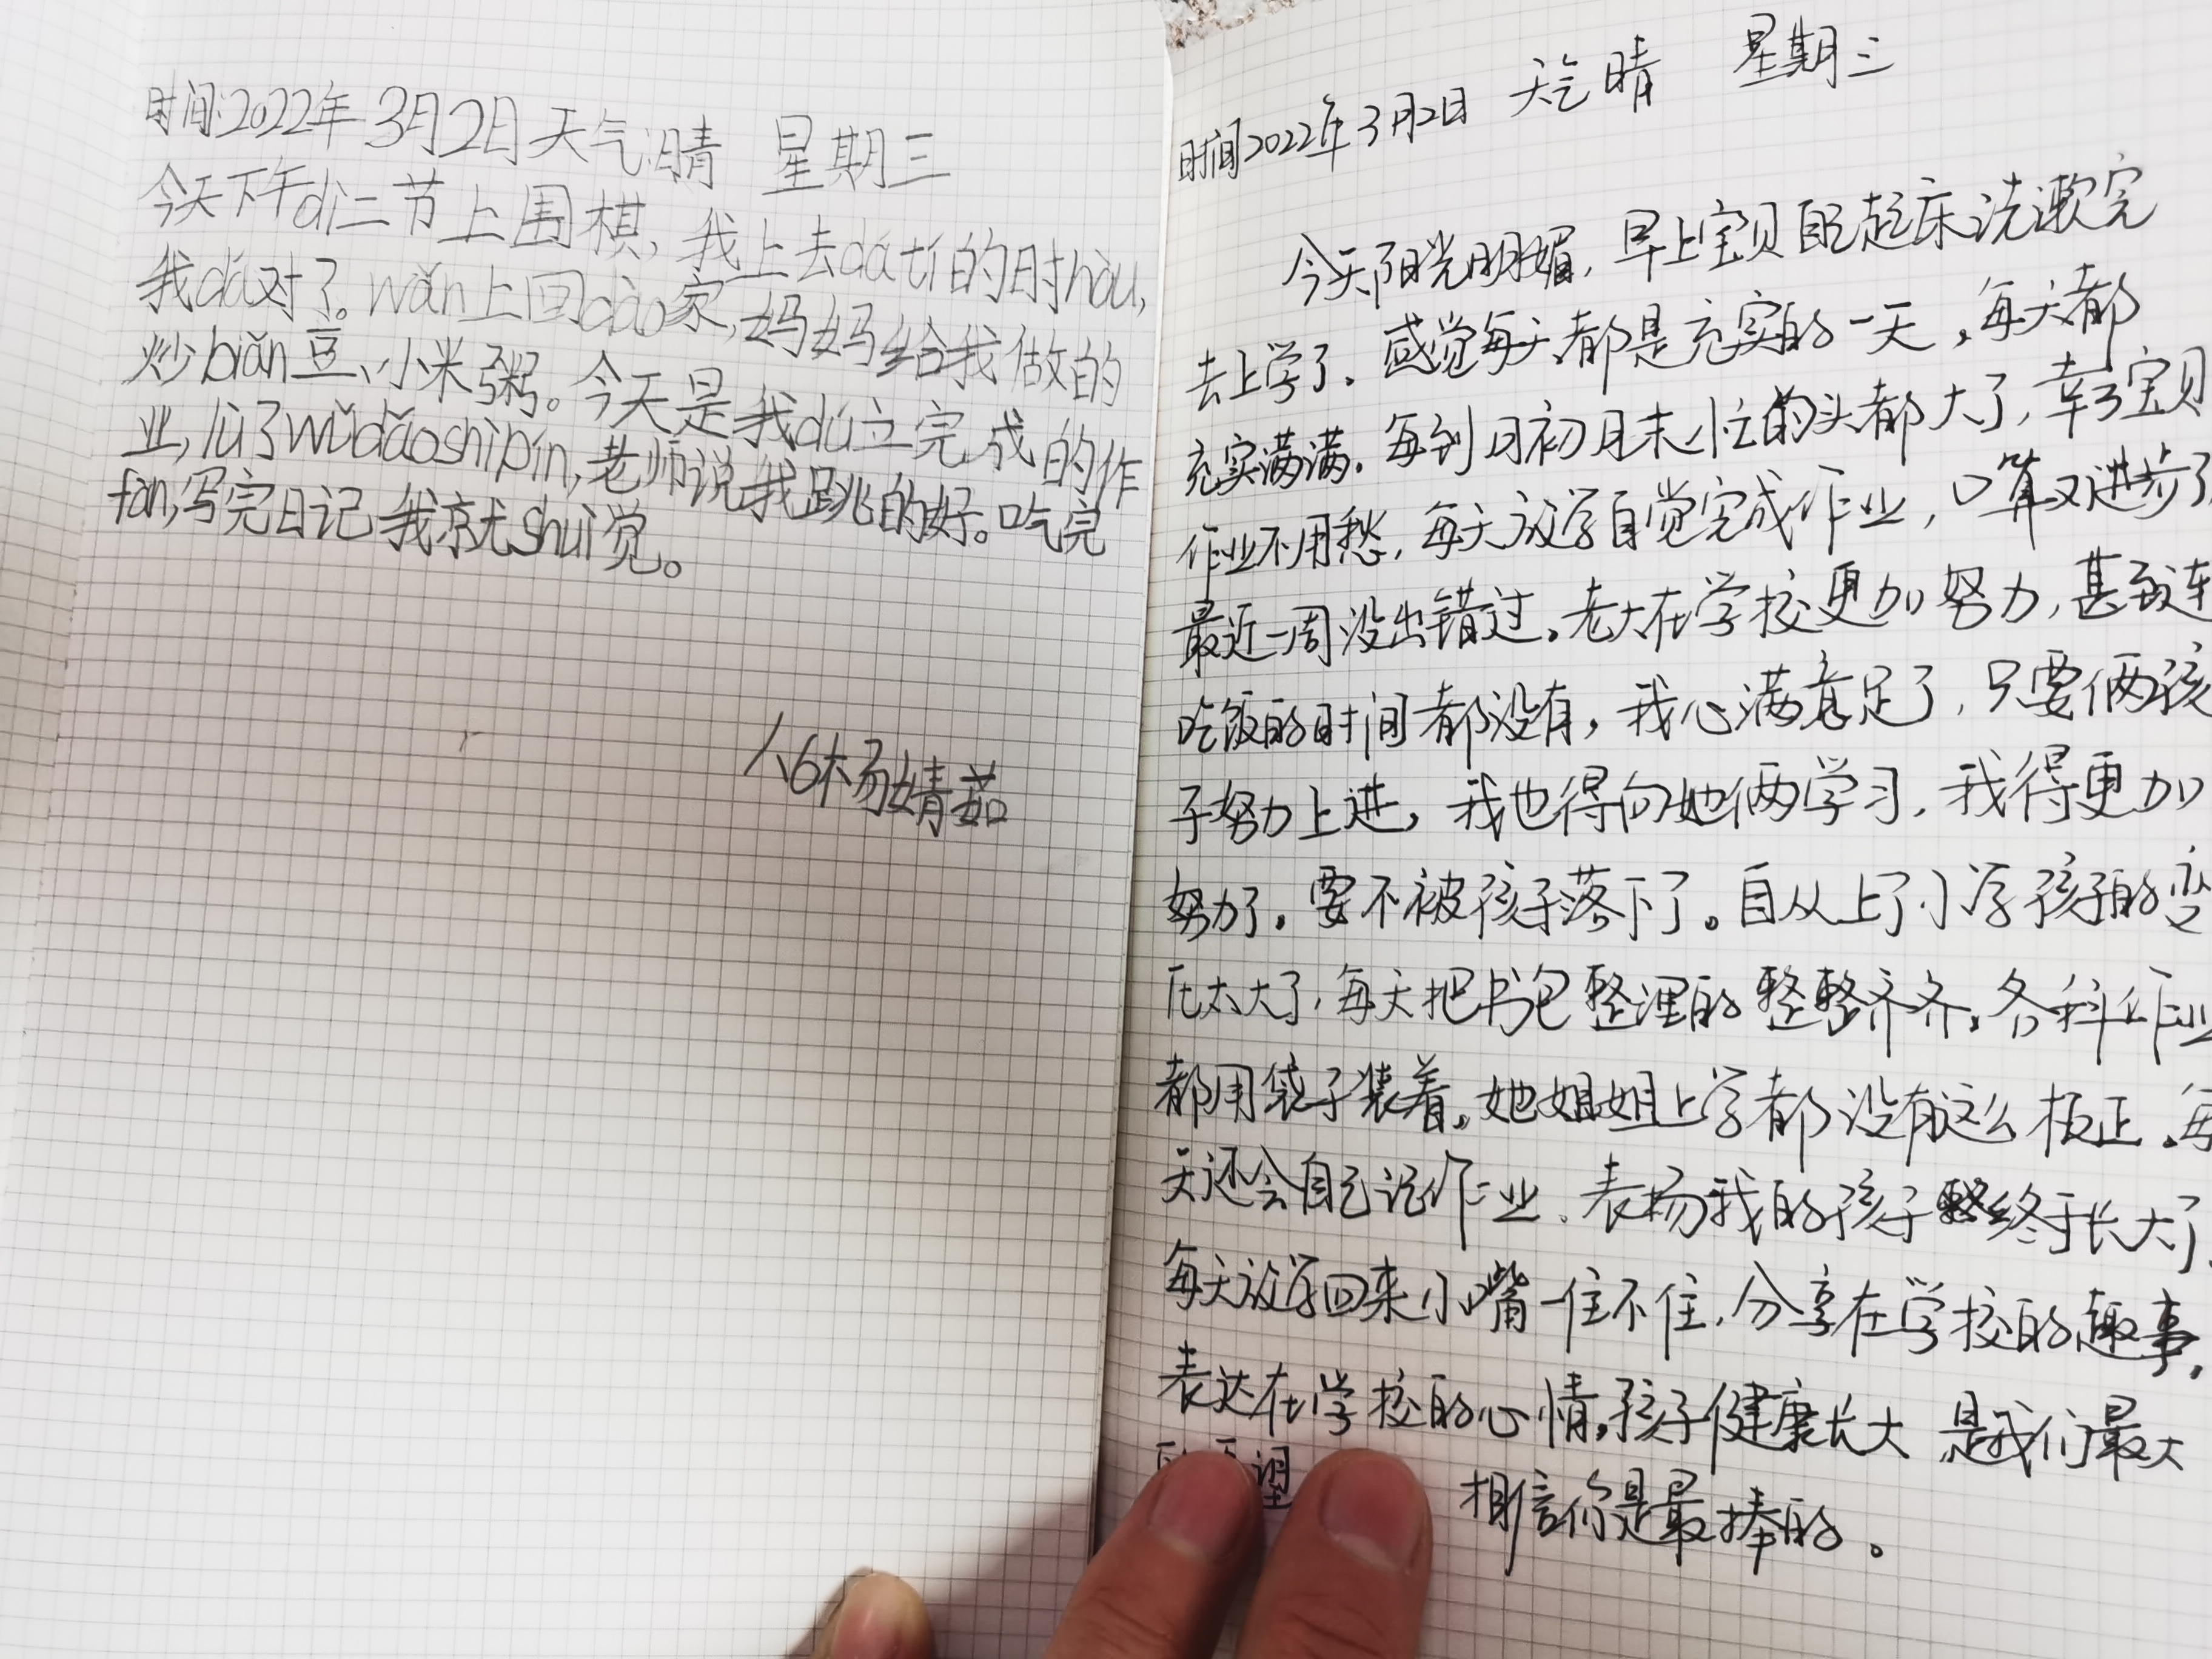 时间:2022年3月2日天气:晴 星期三
今天下午dì二节上围棋,我上去dá tí的时hòu,
我dá对了。wǎn上回dào家,妈妈给我做的
炒biǎn豆、小米粥。今天是我dú立完成的作
业,lù了wǔdǎoshìpín,老师说我跳的好。吃完
fàn,写完日记我就shuì觉。
人6杨婧茹
时间2022年3月2日 天气晴 星期三
今天阳光明媚,早上宝贝自己起床洗漱完
去上学了。感觉每天都是充实的一天,每天都
充实满满。每到月初月末忙的头都大了,幸亏宝贝
作业不用愁,每天放学自觉完成作业,口算又进步了
最近一周没出错过。老大在学校更加努力,甚至连
吃饭的时间都没有,我心满意足了,只要俩孩
子努力上进,我也得向她俩学习,我得更加
努力了,要不被孩子落下了。自从上了小学孩子的变
化太大了,每天把书包整理的整整齐齐,各科作业
都用袋子装着,她姐姐上学都没有这么板正,每
天还会自己记作业,表扬我的孩子终于长大了,
每天放学回来小嘴一住不住,分享在学校的趣事,
表达在学校的心情,孩子健康长大 是我们最大
望
相信你是最捧的。